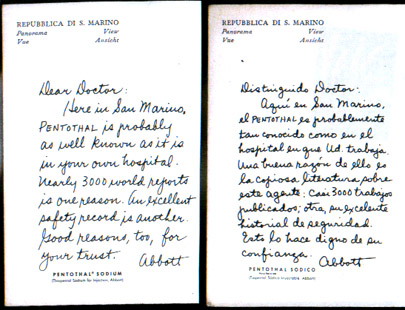 REPUBBLICA DI S. MARINO
Panorama View
Vue Ansicht
Dear Doctor:
Here in San Marino,
PENTOTHAL is probably
as well known as it is
in your own hospital.
Nearly 3000 world reports
is one reason. An excellent
safety record is another.
Good reasons, too, for
your trust. Abbott
PENTOTHAL® SODIUM
(Thiopental Sodium for Injection, Abbott)
REPUBBLICA DI S. MARINO
Panorama View
Vue Ansicht
Distinguido Doctor:
Aquí en San Marino,
el PENTOTHAL es probablemente
tan conocido como en el
hospital en que Ud. trabaja.
Una buena razón de ello es
la copiosa literatura sobre
este agente: Casi 3000 trabajos
publicados; otra, su excelente
historial de seguridad.
Esto lo hace digno de su
confianza. Abbott
PENTOTHAL SODICO